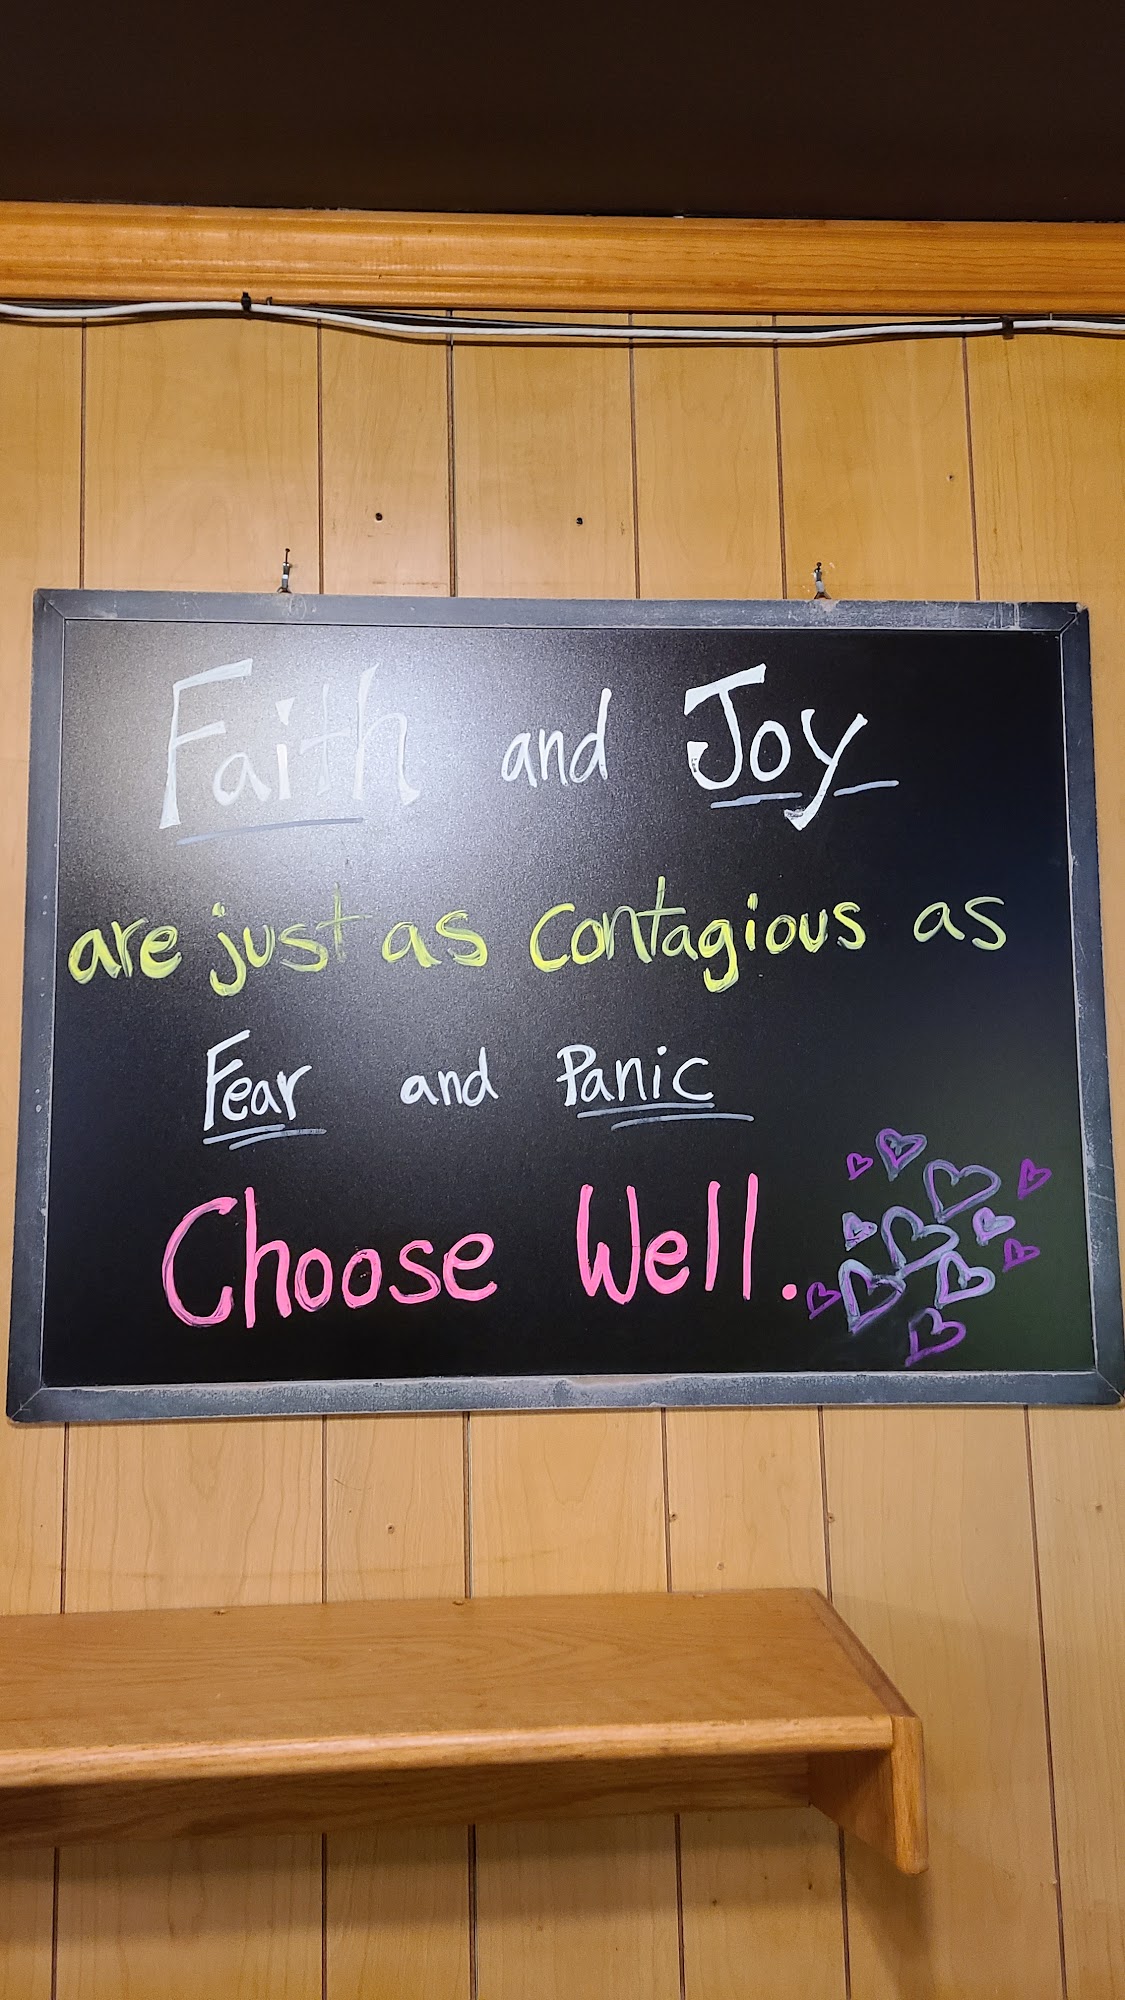 Faith and Joy
are just as contagious as
Fear and Panic
Choose Well.